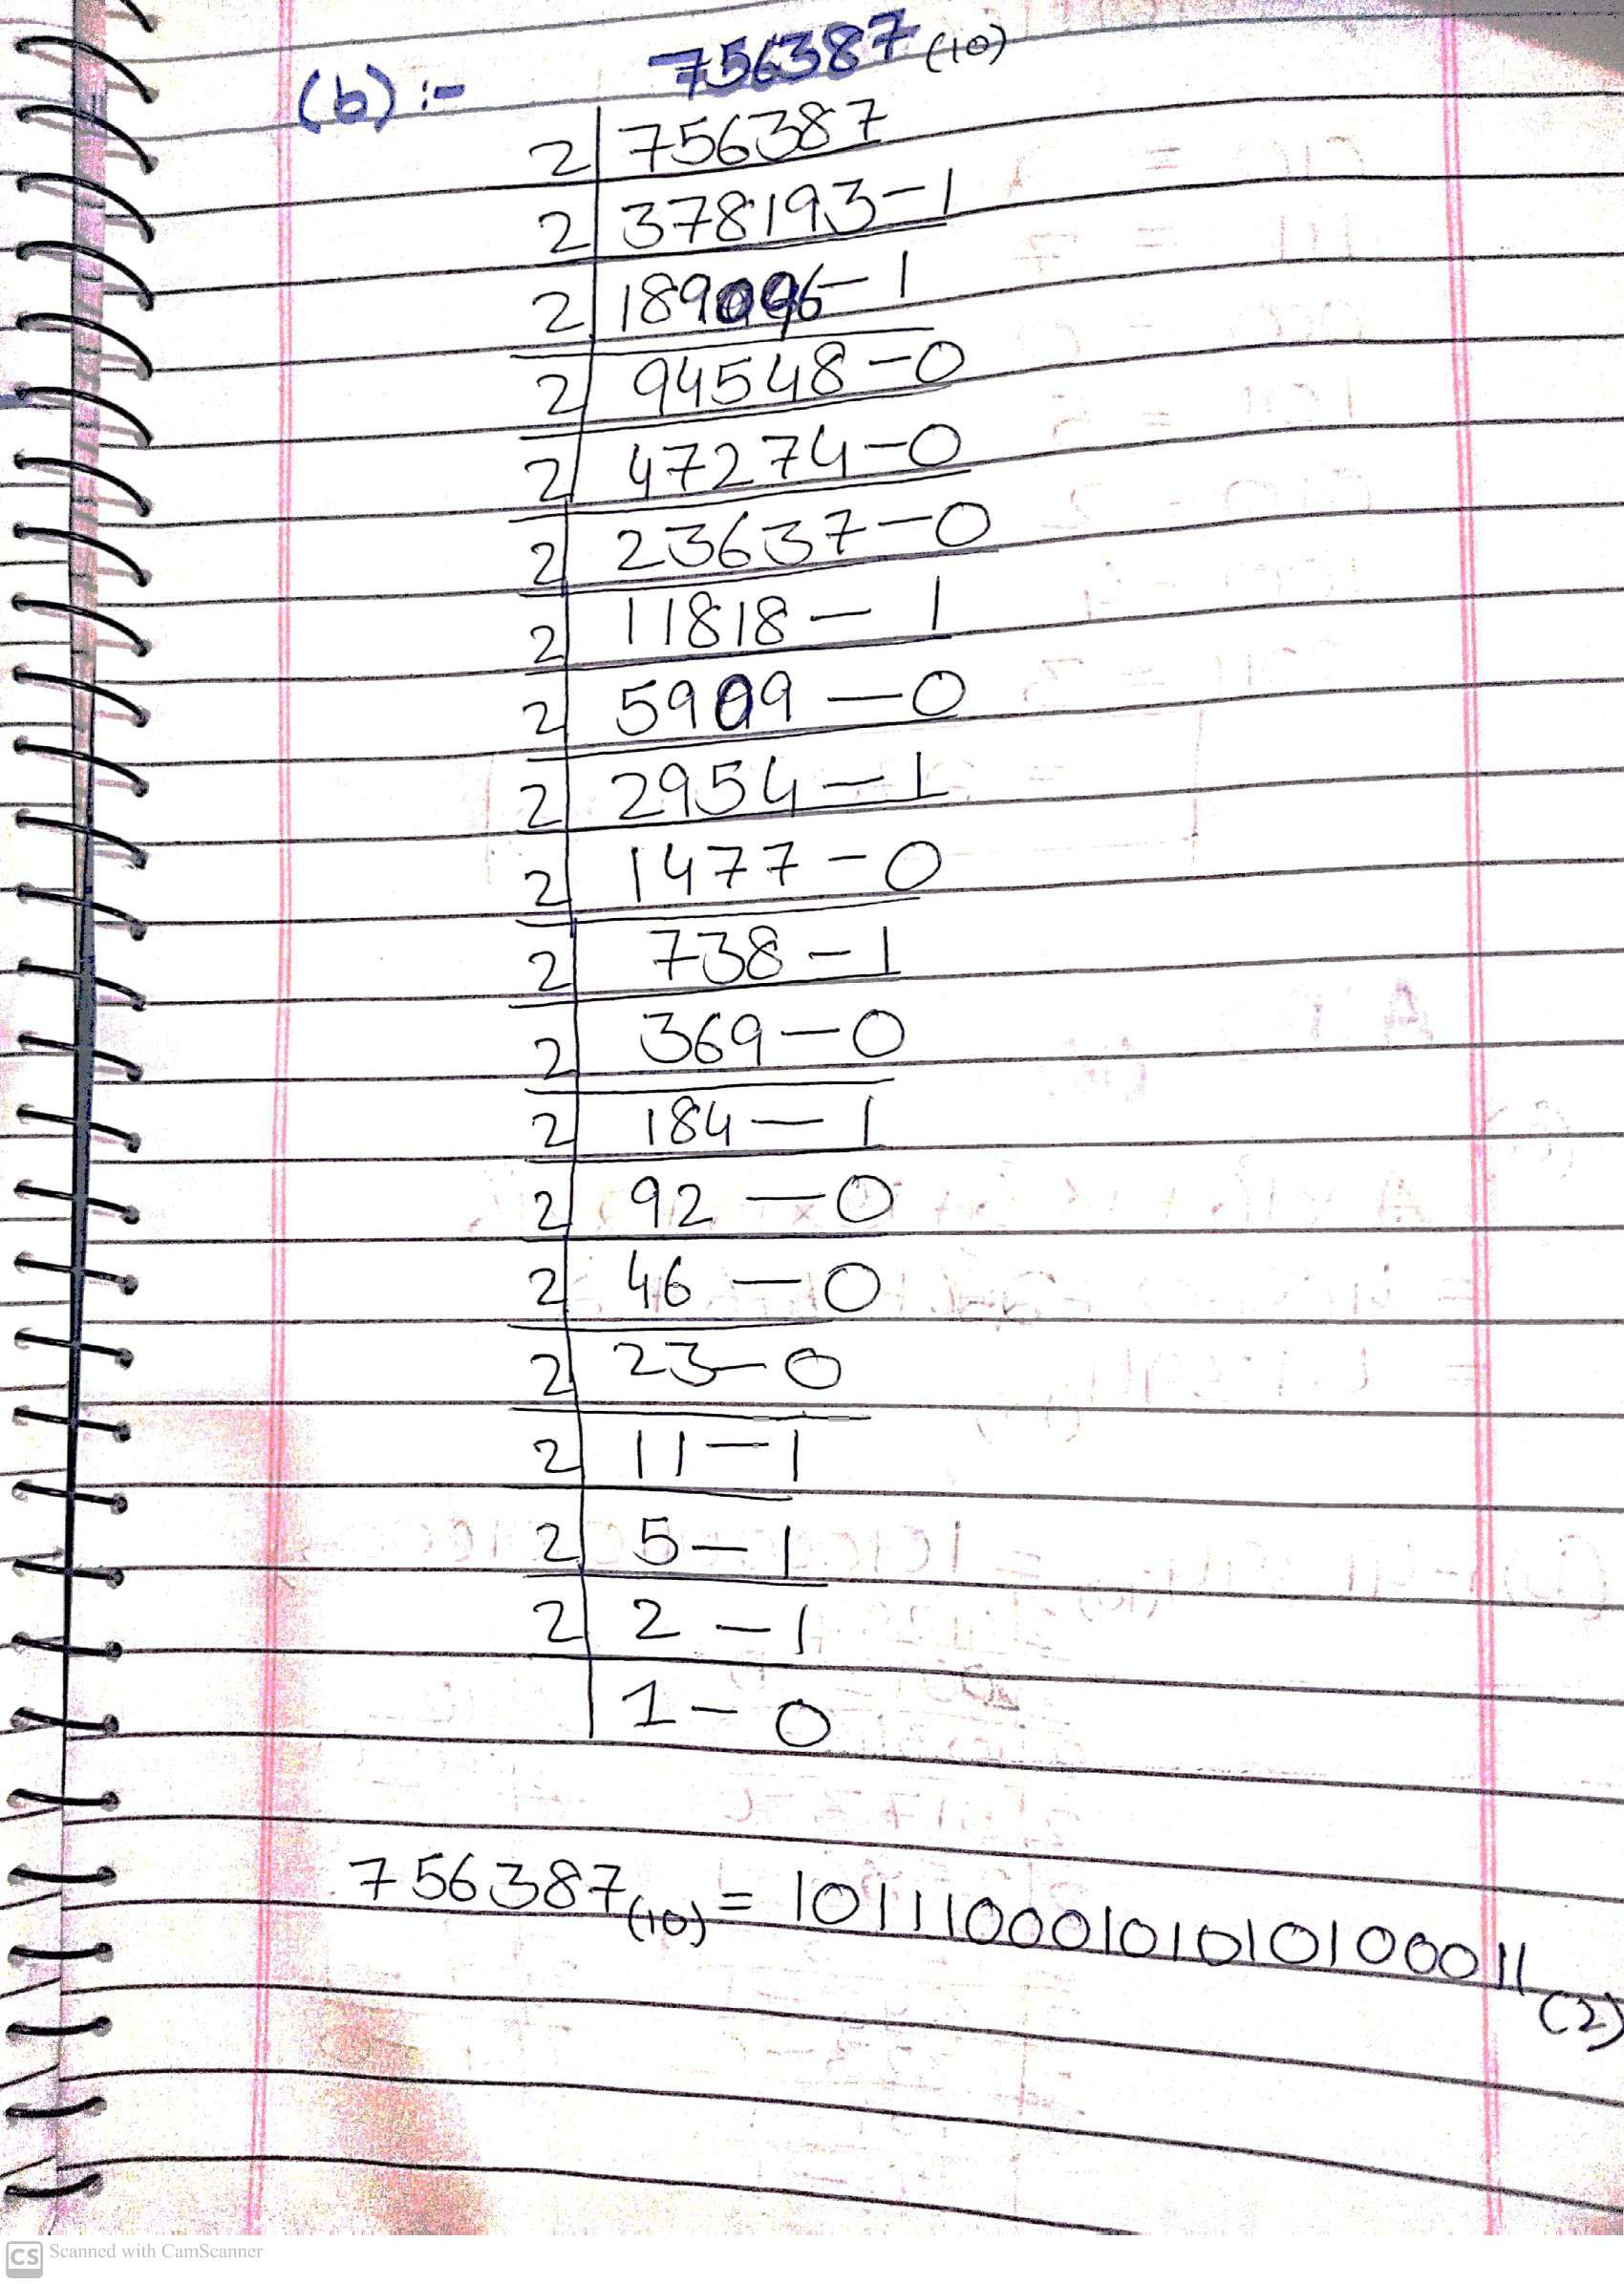 (b) :- 756387 (10)
2 | 756387
2 | 378193 - 1
2 | 189096 - 1
2 | 94548 - 0
2 | 47274 - 0
2 | 23637 - 0
2 | 11818 - 1
2 | 5909 - 0
2 | 2954 - 1
2 | 1477 - 0
2 | 738 - 1
2 | 369 - 0
2 | 184 - 1
2 | 92 - 0
2 | 46 - 0
2 | 23 - 0
2 | 11 - 1
2 | 5 - 1
2 | 2 - 1
| 1 - 0
756387 (10) = 10111000101010100011 (2)
CS Scanned with CamScanner